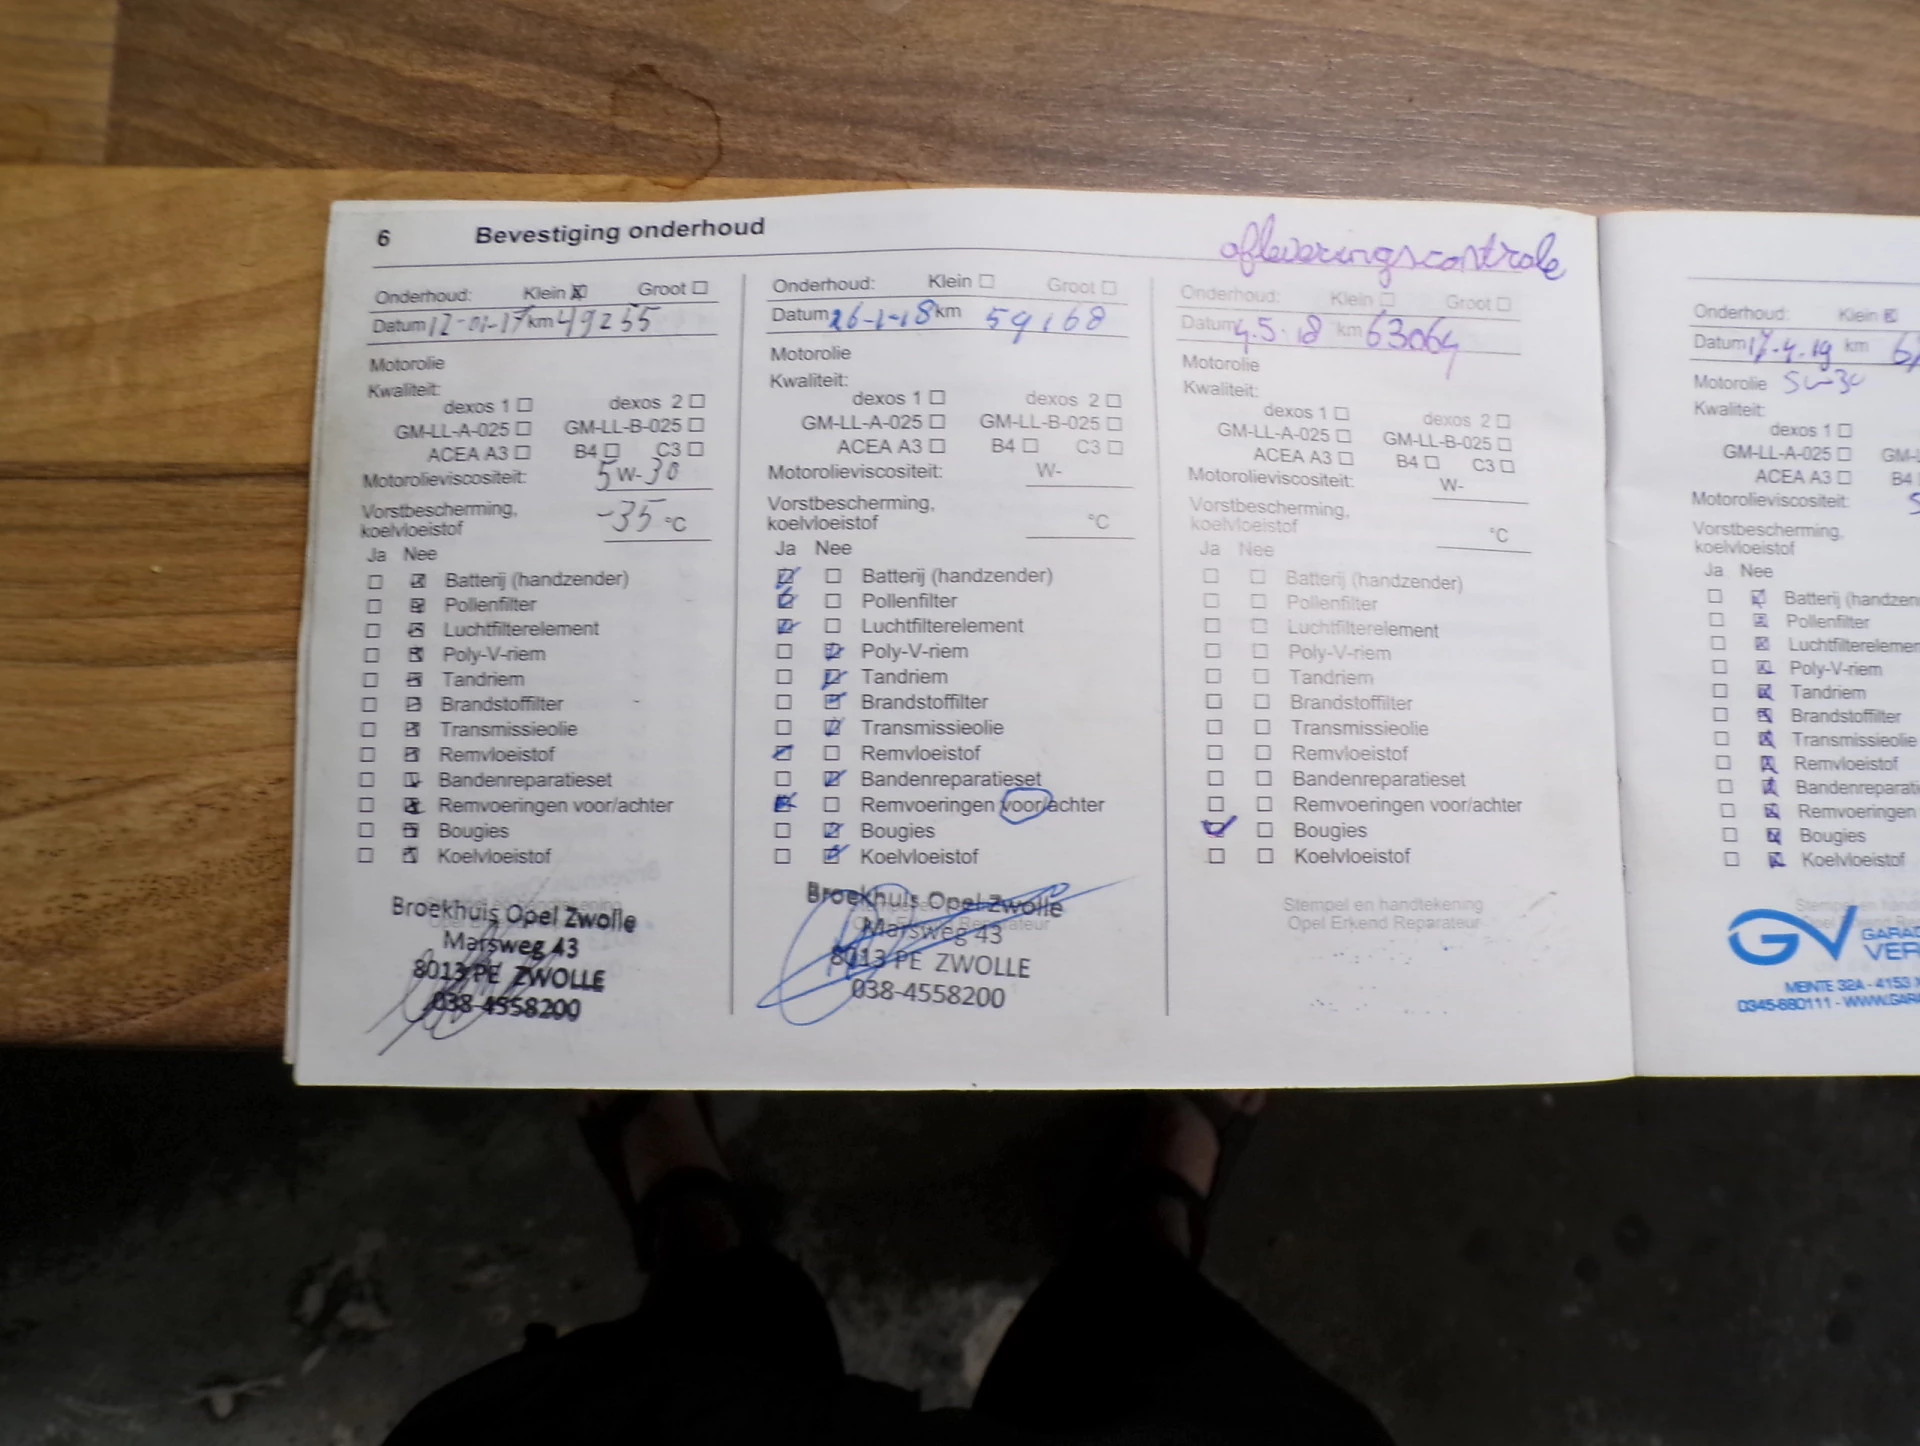 6 Bevestiging onderhoud
afleveringscontrole
Onderhoud: Klein ☒ Groot ☐
Datum 12-01-17 km 49255
Motorolie
Kwaliteit:
dexos 1 ☐ dexos 2 ☐
GM-LL-A-025 ☐ GM-LL-B-025 ☐
ACEA A3 ☐ B4 ☐ C3 ☐
Motorolieviscositeit: 5W-30
Vorstbescherming,
koelvloeistof -35 °C
Ja Nee
☐ ☒ Batterij (handzender)
☐ ☒ Pollenfilter
☐ ☒ Luchtfilterelement
☐ ☒ Poly-V-riem
☐ ☒ Tandriem
☐ ☒ Brandstoffilter
☐ ☒ Transmissieolie
☐ ☒ Remvloeistof
☐ ☒ Bandenreparatieset
☐ ☒ Remvoeringen voor/achter
☐ ☒ Bougies
☐ ☒ Koelvloeistof
Broekhuis Opel Zwolle
Marsweg 43
8013 PE ZWOLLE
038-4558200
Onderhoud: Klein ☐ Groot ☐
Datum 26-1-18 km 59168
Motorolie
Kwaliteit:
dexos 1 ☐ dexos 2 ☐
GM-LL-A-025 ☐ GM-LL-B-025 ☐
ACEA A3 ☐ B4 ☐ C3 ☐
Motorolieviscositeit: W-
Vorstbescherming,
koelvloeistof °C
Ja Nee
☒ ☐ Batterij (handzender)
☒ ☐ Pollenfilter
☒ ☐ Luchtfilterelement
☐ ☒ Poly-V-riem
☐ ☒ Tandriem
☐ ☒ Brandstoffilter
☐ ☒ Transmissieolie
☒ ☐ Remvloeistof
☐ ☒ Bandenreparatieset
☒ ☐ Remvoeringen voor/achter
☐ ☒ Bougies
☐ ☒ Koelvloeistof
Broekhuis Opel Zwolle
Marsweg 43
8013 PE ZWOLLE
038-4558200
Onderhoud: Klein ☐ Groot ☐
Datum 4.5.18 km 63064
Motorolie
Kwaliteit:
dexos 1 ☐ dexos 2 ☐
GM-LL-A-025 ☐ GM-LL-B-025 ☐
ACEA A3 ☐ B4 ☐ C3 ☐
Motorolieviscositeit: W-
Vorstbescherming,
koelvloeistof °C
Ja Nee
☐ ☐ Batterij (handzender)
☐ ☐ Pollenfilter
☐ ☐ Luchtfilterelement
☐ ☐ Poly-V-riem
☐ ☐ Tandriem
☐ ☐ Brandstoffilter
☐ ☐ Transmissieolie
☐ ☐ Remvloeistof
☐ ☐ Bandenreparatieset
☐ ☐ Remvoeringen voor/achter
☑ ☐ Bougies
☐ ☐ Koelvloeistof
Stempel en handtekening
Opel Erkend Reparateur
Onderhoud: Klein ☒
Datum 17-4-19 km
Motorolie 5w-30
Kwaliteit:
dexos 1 ☐
GM-LL-A-025 ☐ GM-
ACEA A3 ☐ B4
Motorolieviscositeit: 5
Vorstbescherming,
koelvloeistof
Ja Nee
☐ ☒ Batterij (handzen
☐ ☒ Pollenfilter
☐ ☒ Luchtfilterelemen
☐ ☒ Poly-V-riem
☐ ☒ Tandriem
☐ ☒ Brandstoffilter
☐ ☒ Transmissieolie
☐ ☒ Remvloeistof
☐ ☒ Bandenreparati
☐ ☒ Remvoeringen
☐ ☒ Bougies
☐ ☒ Koelvloeistof
GV GARA
VER
MEINTE 32A - 4153
0345-680111 - WWW.GAR